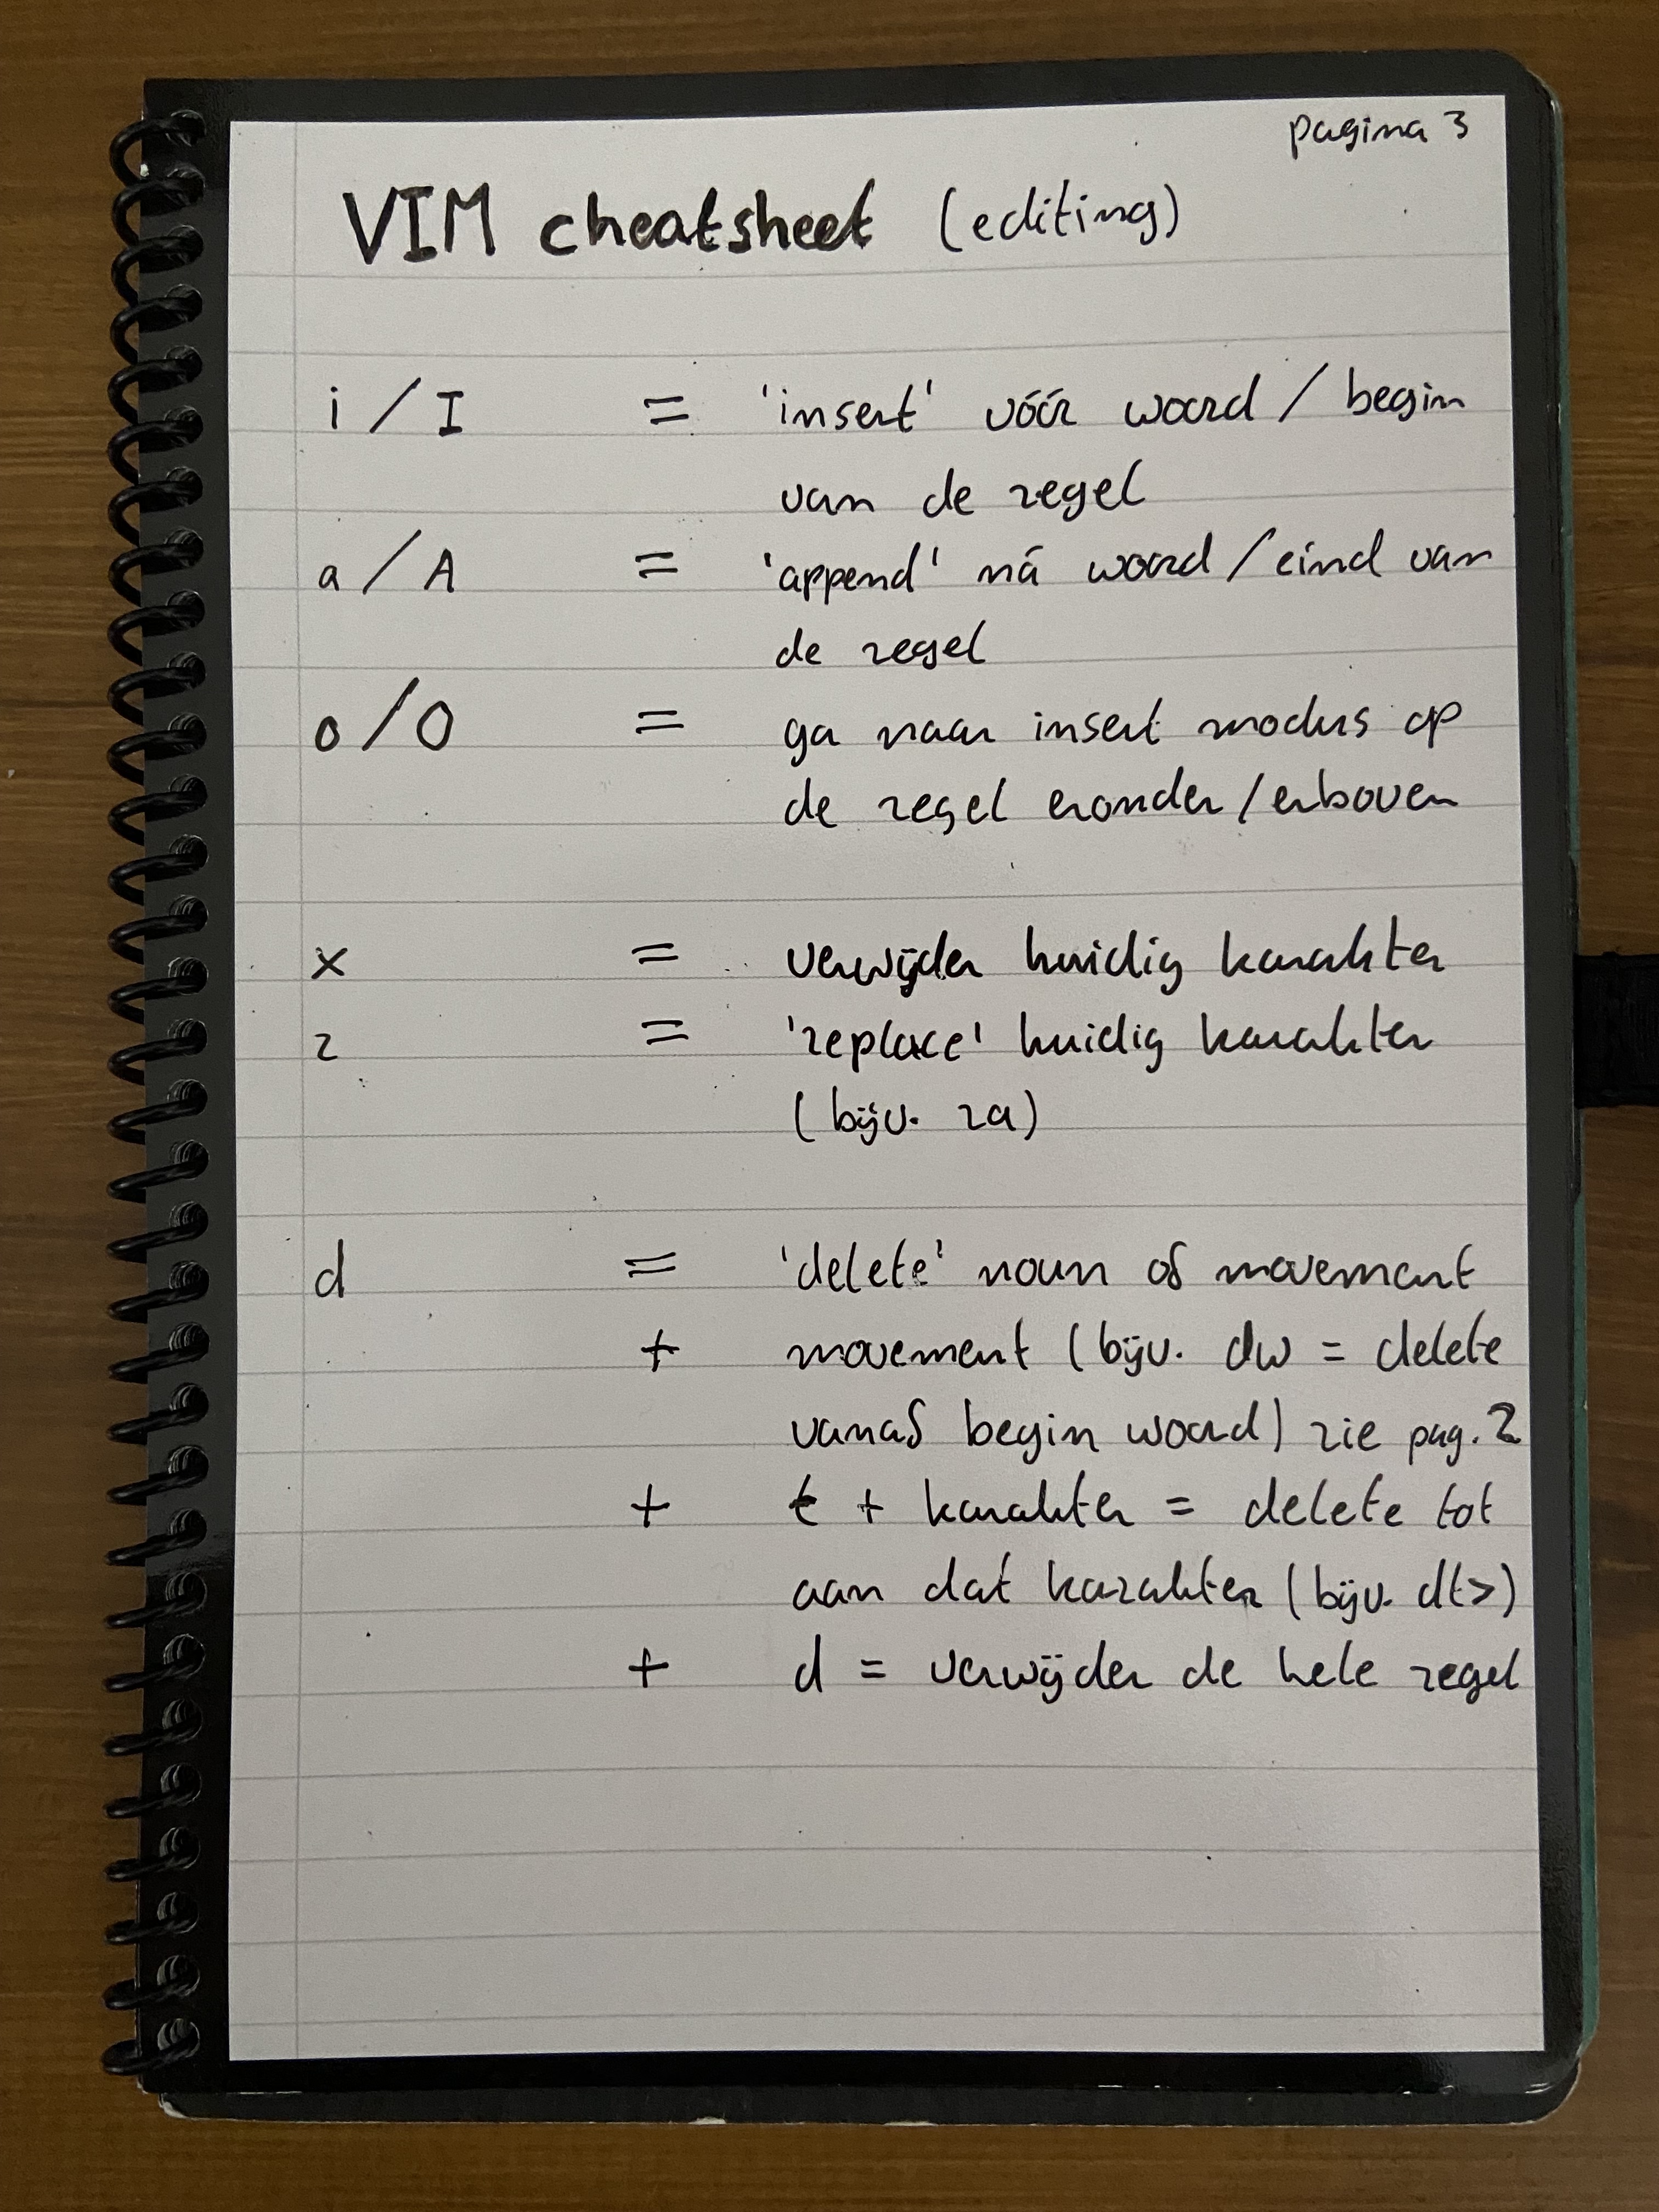 pagina 3
VIM cheatsheet (editing)
i / I = 'insert' vóór woord / begin
van de regel
a / A = 'append' ná woord / eind van
de regel
o / O = ga naar insert modus op
de regel eronder / erboven
x = verwijder huidig karakter
r = 'replace' huidig karakter
(bijv. ra)
d = 'delete' noun of movement
+ movement (bijv. dw = delete
vanaf begin woord) zie pag. 2
+ t + karakter = delete tot
aan dat karakter (bijv. dt>)
+ d = verwijder de hele regel